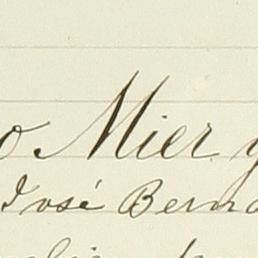 o Mier y
José Berna